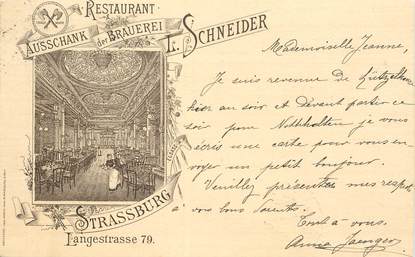 RESTAURANT
AUSSCHANK der BRAUEREI
L. SCHNEIDER
STRASSBURG
ELSASS
Langestrasse 79.
Mademoiselle Jeanne,
Je suis revenue de
hier au soir et devant partir ce
soir pour je vous
écris une carte pour vous en-
voyer un petit bonjour.
Veuillez présenter mes respects
à vos bons parents.
Tout à vous.
Anna